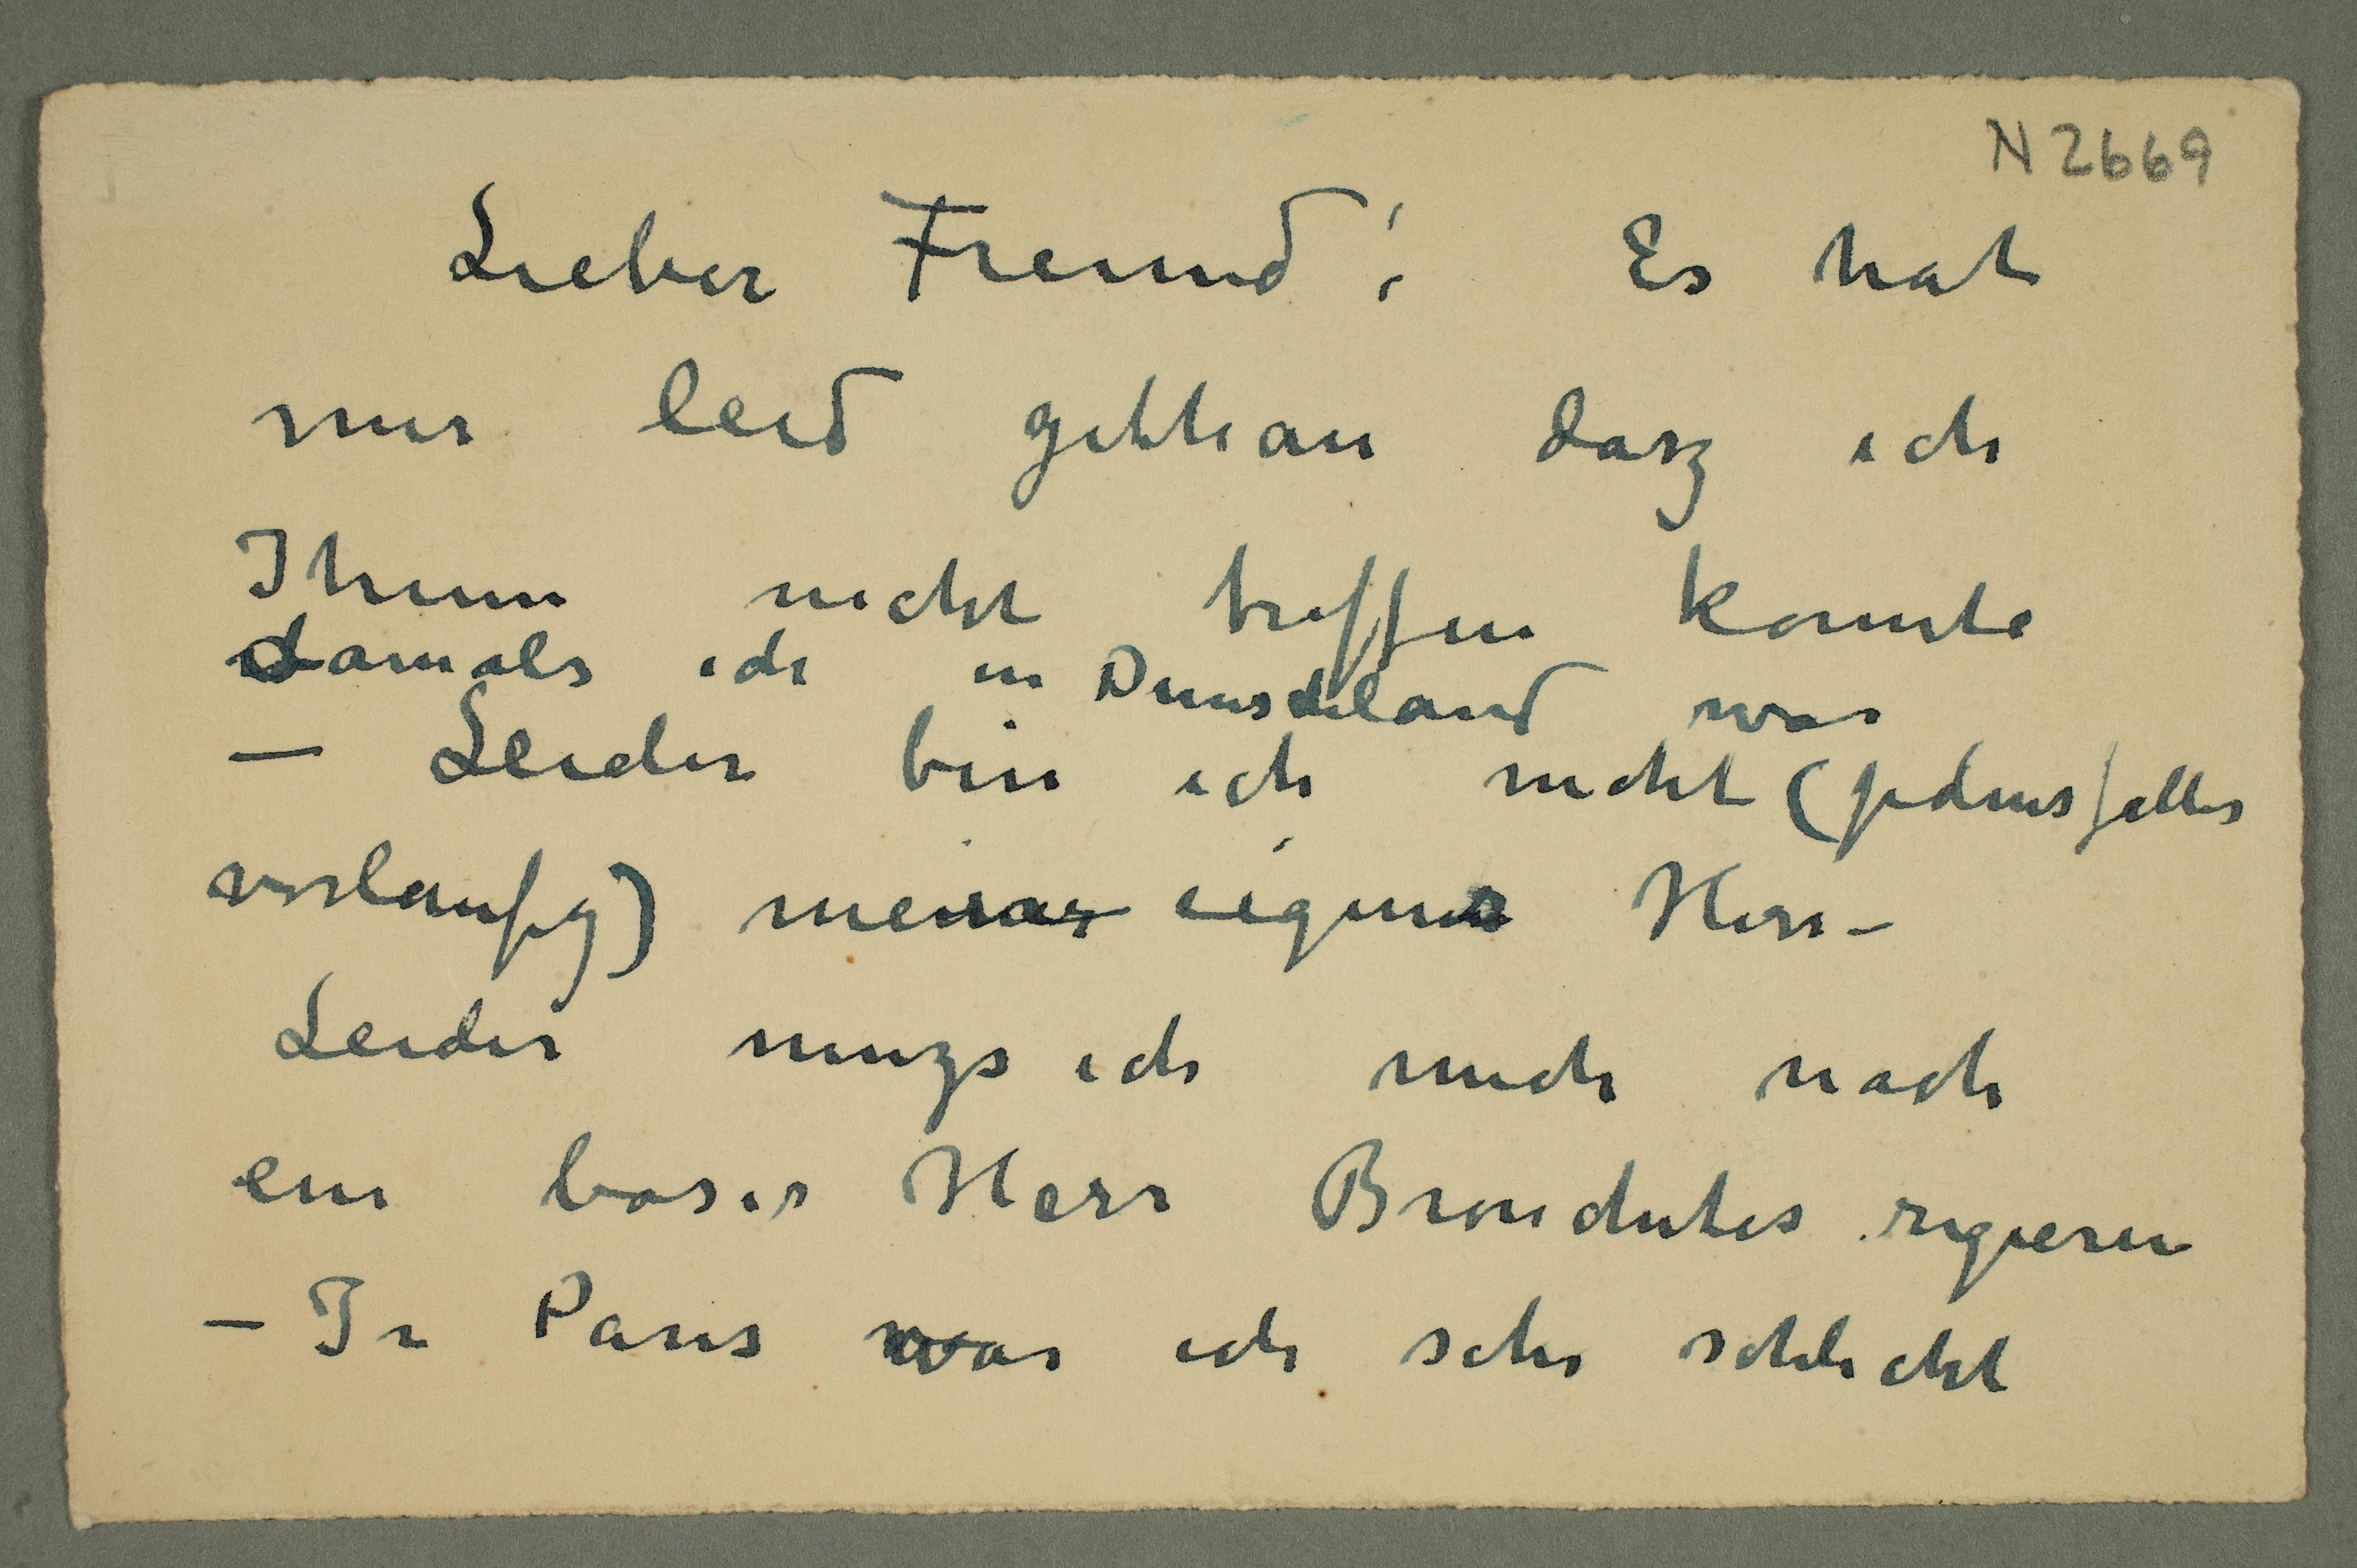 N 2669
Lieber Freund! Es hat
mir leid gethan dasz ich
Ihnen nicht treffen konnte
damals ich in war
– Leider bin ich nicht (jedensfalls
vorlaufig) meiner eigener Herr –
Leider muzs ich mich nach
ein boser Herr Bronchites regieren
– In Paris war ich sehr schlecht